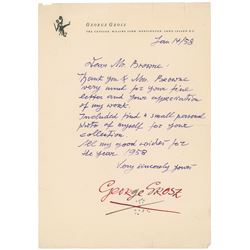 GEORGE GROSZ
THE COTTAGE, HILAIRE FARM, HUNTINGTON, LONG ISLAND N.Y.
Jan 14/58
Dear Mr. Browne:
Thank you & Mrs. Browne
very much for your fine
letter and your appreciation
of my work.
Included find a small personal
photo of myself for your
collection.
All my good wishes for
the year 1958
Very sincerely yours
George Grosz